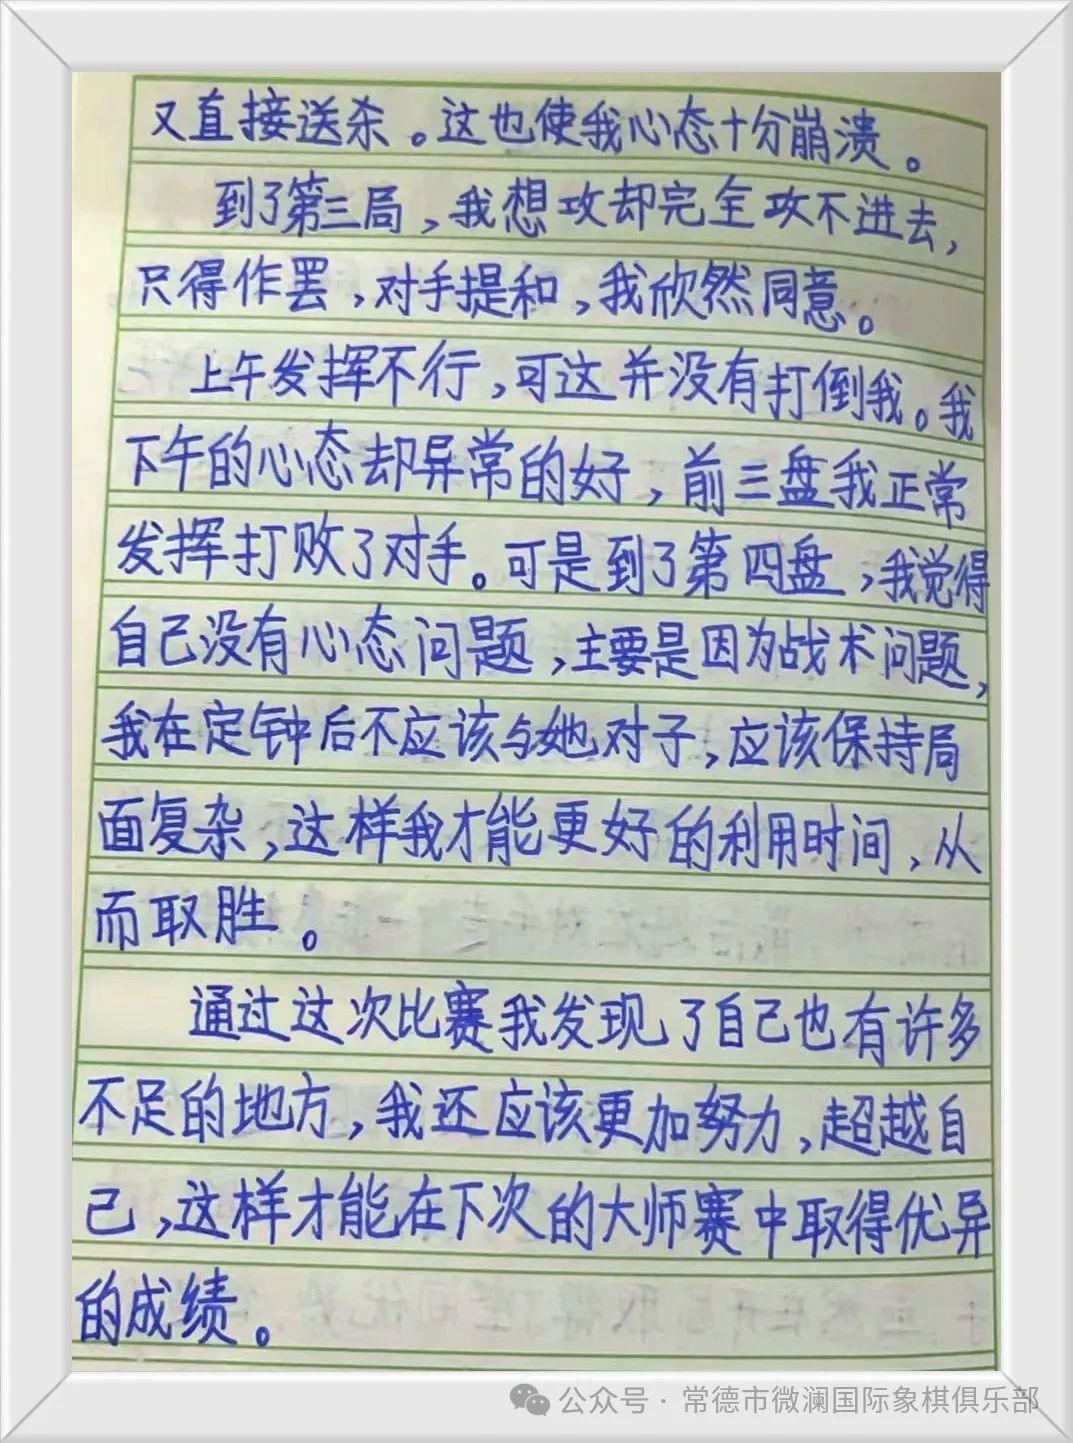 又直接送杀。这也使我心态十分崩溃。
到了第三局，我想攻却完全攻不进去，
只得作罢，对手提和，我欣然同意。
上午发挥不行，可这并没有打倒我。我
下午的心态却异常的好，前三盘我正常
发挥打败了对手。可是到了第四盘，我觉得
自己没有心态问题，主要是因为战术问题，
我在定钟后不应该与她对子，应该保持局
面复杂，这样我才能更好的利用时间，从
而取胜。
通过这次比赛我发现了自己也有许多
不足的地方，我还应该更加努力，超越自
己，这样才能在下次的大师赛中取得优异
的成绩。
公众号·常德市微澜国际象棋俱乐部